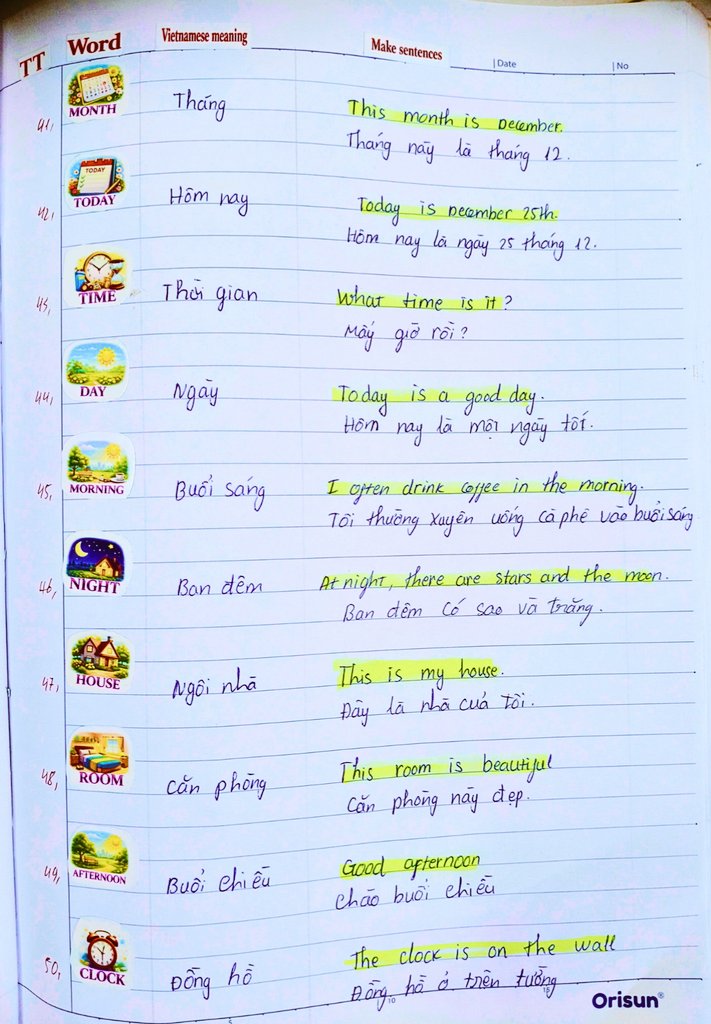 TT Word Vietnamese meaning Make sentences
Date No
41, MONTH Tháng This month is December.
Tháng này là tháng 12.
TODAY
42, TODAY Hôm nay Today is December 25th.
Hôm nay là ngày 25 tháng 12.
43, TIME Thời gian What time is it?
Mấy giờ rồi?
44, DAY Ngày Today is a good day.
Hôm nay là một ngày tốt.
45, MORNING Buổi sáng I often drink coffee in the morning.
Tôi thường xuyên uống cà phê vào buổi sáng
46, NIGHT Ban đêm At night, there are stars and the moon.
Ban đêm có sao và trăng.
47, HOUSE Ngôi nhà This is my house.
Đây là nhà của tôi.
48, ROOM Căn phòng This room is beautiful
Căn phòng này đẹp.
49, AFTERNOON Buổi chiều Good afternoon
Chào buổi chiều
50, CLOCK Đồng hồ The clock is on the wall
Đồng hồ ở trên tường
5 10 15
Orisun®